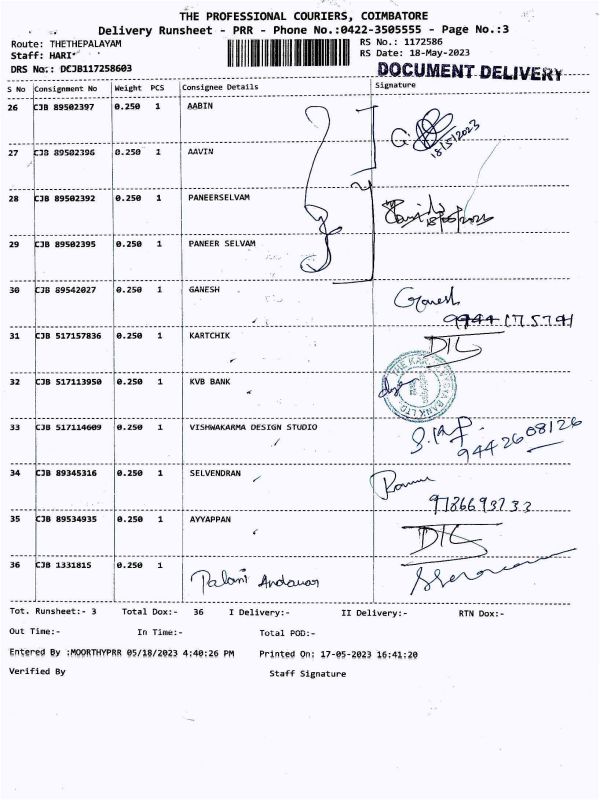 THE PROFESSIONAL COURIERS, COIMBATORE
Delivery Runsheet - PRR - Phone No.:0422-3505555 - Page No.:3
Route: THETHEPALAYAM RS No.: 1172586
Staff: HARI RS Date: 18-May-2023
DRS No.: DCJB117258603 DOCUMENT DELIVERY
S No Consignment No Weight PCS Consignee Details Signature
26 CJB 89502397 0.250 1 AABIN
18/5/2023
27 CJB 89502396 0.250 1 AAVIN
28 CJB 89502392 0.250 1 PANEERSELVAM
29 CJB 89502395 0.250 1 PANEER SELVAM
30 CJB 89542027 0.250 1 GANESH Ganesh
9944 175791
31 CJB 517157836 0.250 1 KARTCHIK DIL
32 CJB 517113950 0.250 1 KVB BANK THE KARUR VYSYA BANK LTD.
33 CJB 517114609 0.250 1 VISHWAKARMA DESIGN STUDIO
9442608126
34 CJB 89345316 0.250 1 SELVENDRAN
9786693733
35 CJB 89534935 0.250 1 AYYAPPAN DIL
36 CJB 1331815 0.250 1 Palani Andavar
Tot. Runsheet:- 3 Total Dox:- 36 I Delivery:- II Delivery:- RTN Dox:-
Out Time:- In Time:- Total POD:-
Entered By :MOORTHYPRR 05/18/2023 4:40:26 PM Printed On: 17-05-2023 16:41:20
Verified By Staff Signature